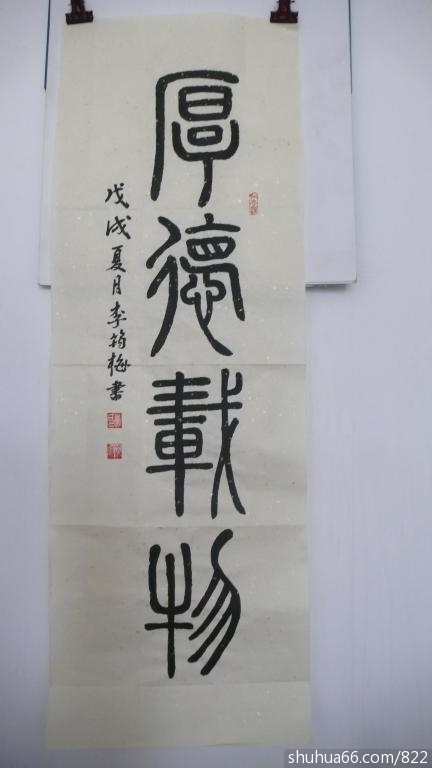 厚德載物
戊戌夏月李筠梅書
shuhua66.com/822